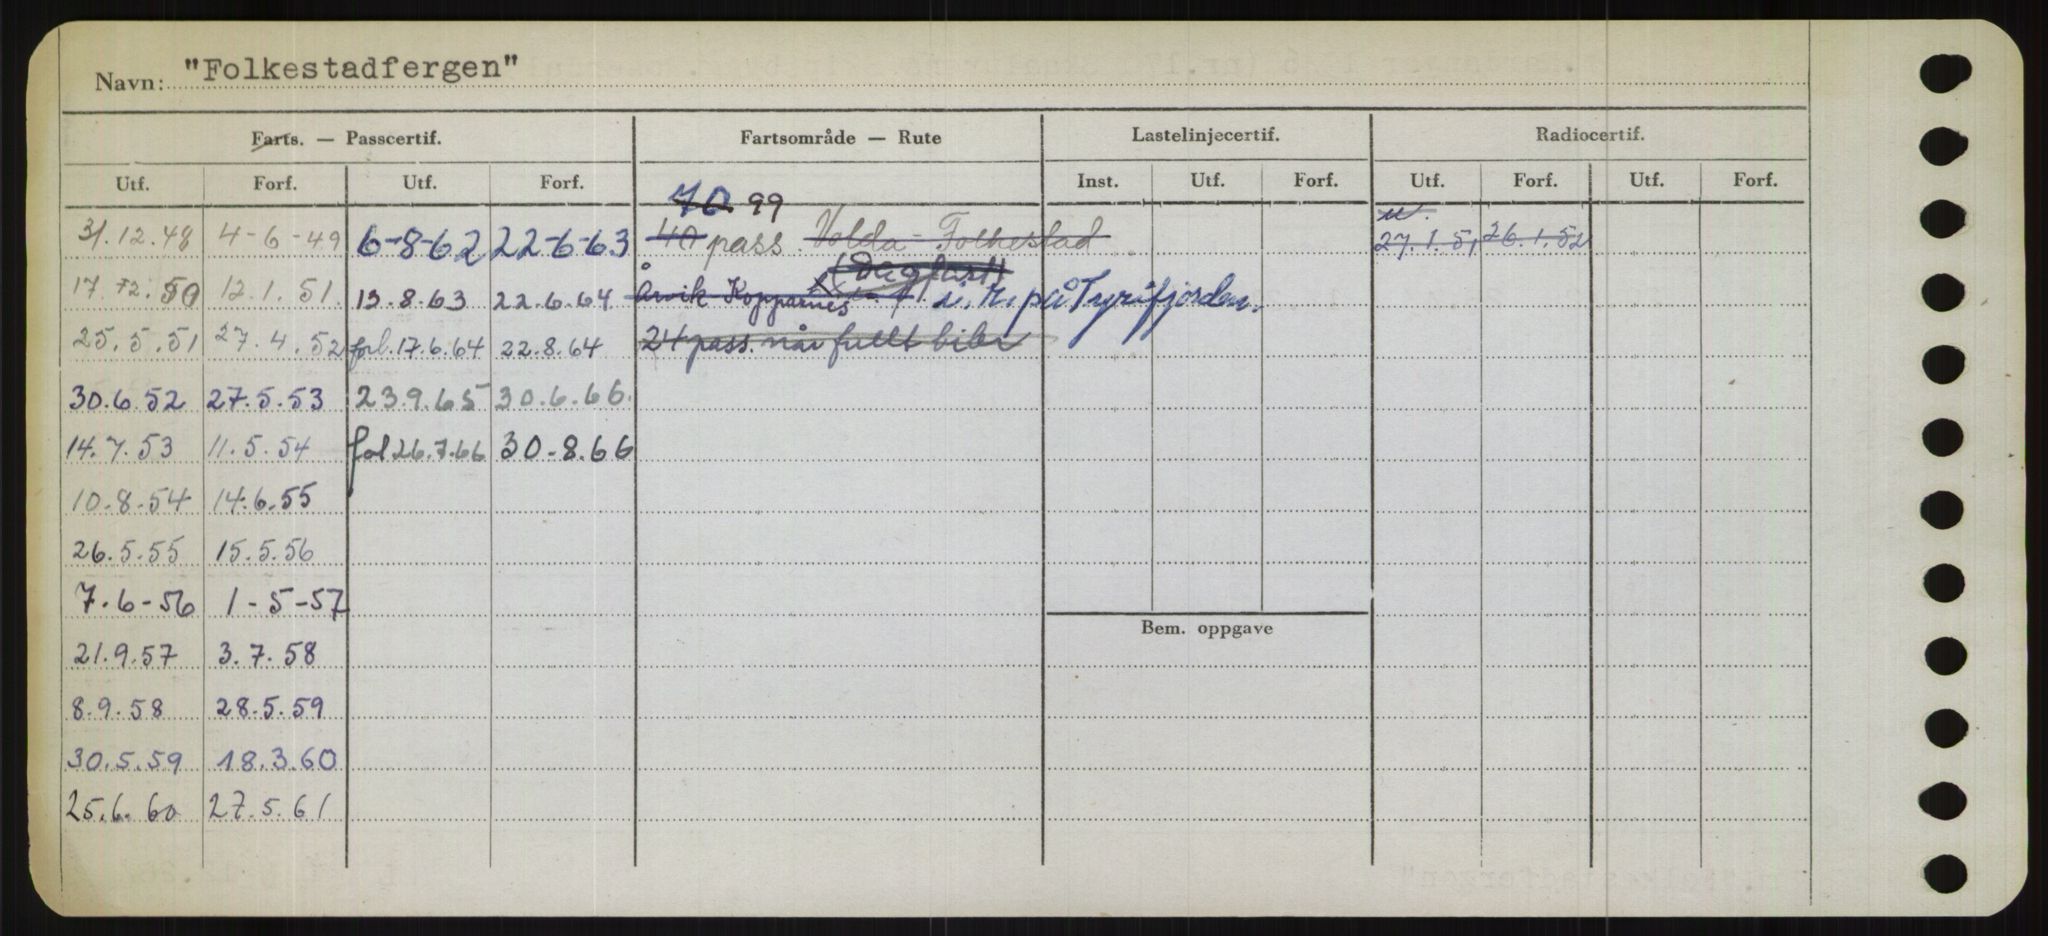 Navn: "Folkestadfergen"
Farts. — Passcertif. Fartsområde — Rute Lastelinjecertif. Radiocertif.
Utf. Forf. Utf. Forf. Inst. Utf. Forf. Utf. Forf. Utf. Forf.
70 99
31.12.48 4-6-49 6-8-62 22-6-63 40 pass. Volda - Folkestad 27.1.51 26.1.52
(Dagfart)
17.12.50 12.1.51. 13.8.63 22.6.64 Årvik Kopparnes i. r. på Tyrifjorden.
25.5.51 27.4.52 forl. 17.6.64 22.8.64 24 pass. når fullt biler
30.6.52 27.5.53 23.9.65 30.6.66.
14.7.53 11.5.54 fol 26.7.66 30-8.66
10-8-54 14.6.55
26.5.55 15.5.56
7.6-56 1-5-57
Bem. oppgave
21.9.57 3.7.58
8.9.58 28.5.59
30.5.59 18.3.60
25.6.60 27.5.61